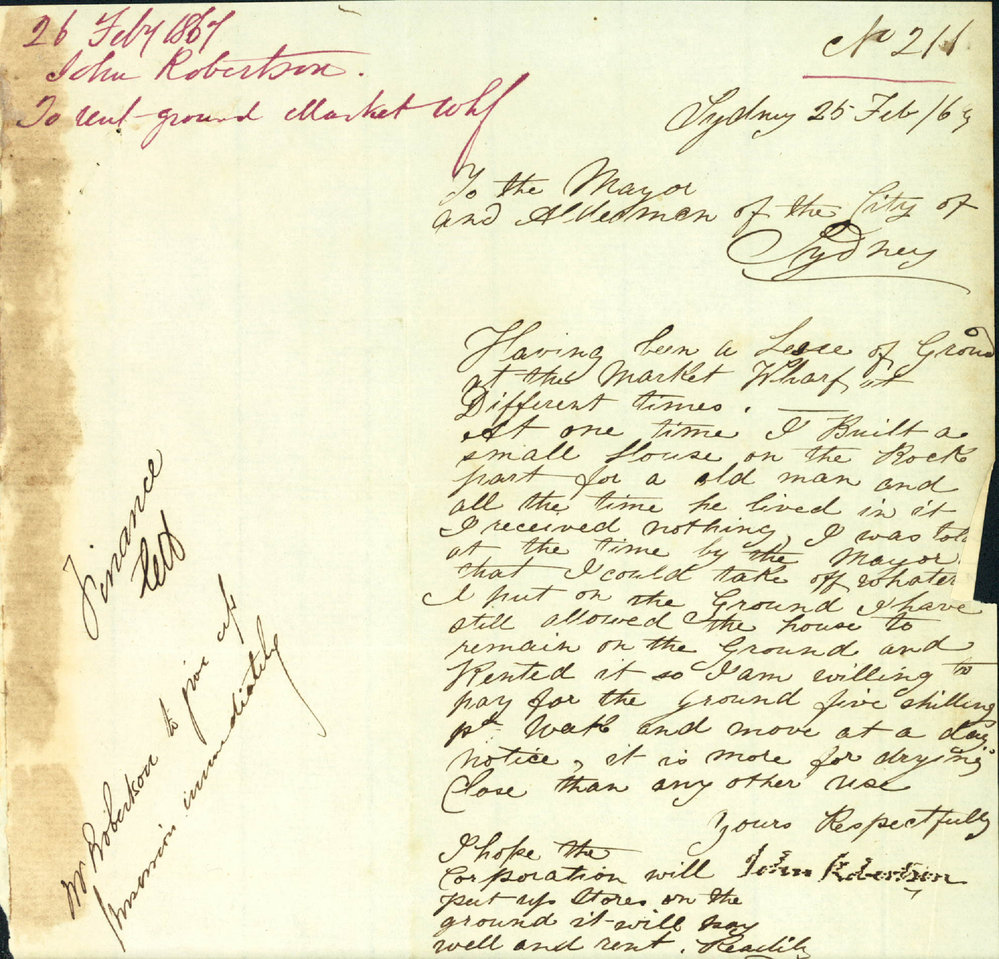 26 Feby 1867
John Robertson.
To rent ground Market Whf
No 211
Sydney 25 Feb /67
To the Mayor
and Aldermen of the City of
Sydney
Having been a Lesee of Ground
at the Market Wharf at
Different times. —
At one time I Built a
small House on the Rock
part for a old man and
all the time he lived in it
I received nothing, I was told
at the time by the Mayor
that I could take off whatev
I put on the Ground I have
still allowed the house to
remain on the Ground and
Rented it so I am willing to
pay for the Ground five shilling
pr Week and move at a days
notice, it is more for drying
Close than any other use
Yours Respectfully
John Robertson
I hope the
Corporation will
put up Stores on the
ground it will pay
well and rent. Readily
Finance
Mr Robertson to give up
possession immediately